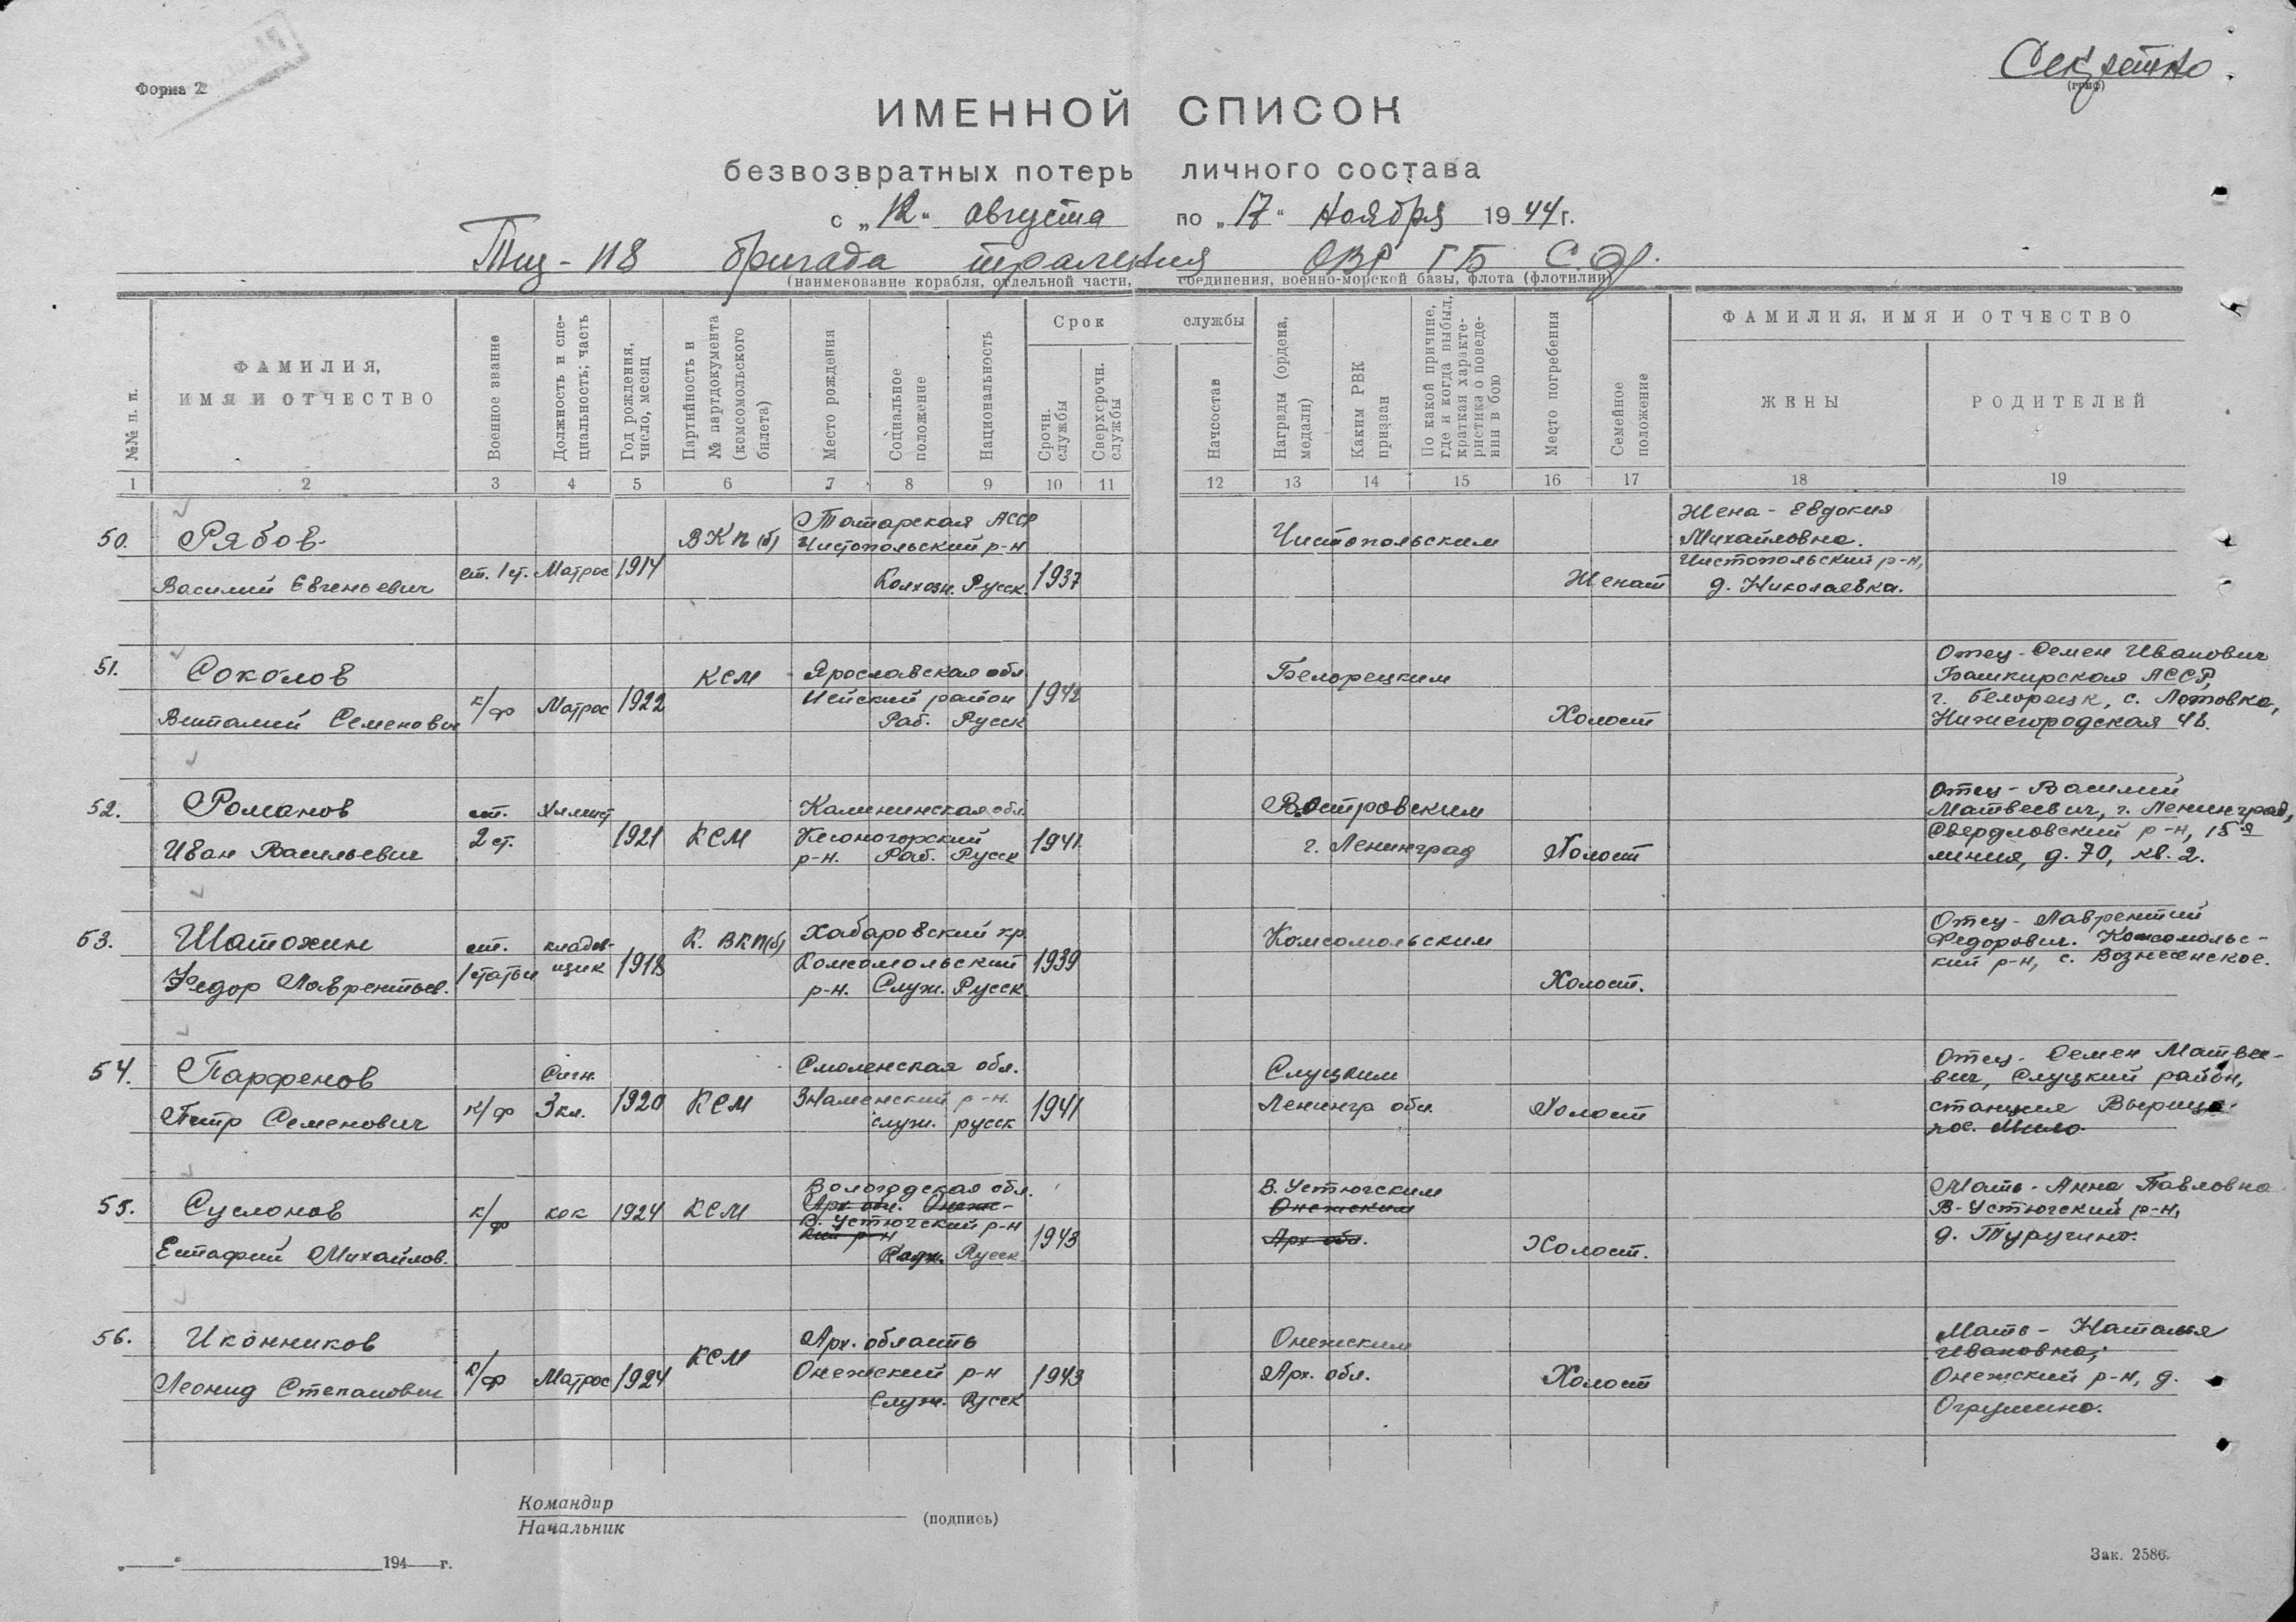 Форма 2
Секретно
(гриф)
ИМЕННОЙ СПИСОК
безвозвратных потерь личного состава
с „12“ августа по „17“ ноября 1944 г.
Тщ-118 бригада траления ОВР ГБ С.Ф.
(наименование корабля, отдельной части, соединения, военно-морской базы, флота (флотилии)
№№ п. п.
ФАМИЛИЯ,
ИМЯ И ОТЧЕСТВО
Военное звание
Должность и спе-
циальность; часть
Год рождения,
число, месяц
Партийность и
№ партдокумента
(комсомольского
билета)
Место рождения
Социальное
положение
Национальность
Срок службы
Срочн.
службы
Сверхсрочн.
службы
Начсостав
Награды (ордена,
медали)
Каким РВК
призван
По какой причине,
где и когда выбыл,
краткая характе-
ристика о поведе-
нии в бою
Место погребения
Семейное
положение
ФАМИЛИЯ, ИМЯ И ОТЧЕСТВО
ЖЕНЫ
РОДИТЕЛЕЙ
1 2 3 4 5 6 7 8 9 10 11 12 13 14 15 16 17 18 19
50.
Рябов
Василий Евгеньевич
ст. 1 ст.
Матрос
1914
ВКП(б)
Татарская АССР
Чистопольский р-н
Колхозн. Русск.
1937
Чистопольским
Женат
Жена - Евдокия
Михайловна.
Чистопольский р-н,
д. Николаевка.
51.
Соколов
Виталий Семенович
к/ф
Матрос
1922
КСМ
Ярославская обл
район
Раб. Русск
1942
Белорецким
Холост
Отец - Семен Иванович
Башкирская АССР,
г. Белорецк, с. Ломовка,
Нижегородская
52.
Романов
Иван Васильевич
ст.
2 ст.
Химист
1921
КСМ
Калининская обл.
Кесоногорский
р-н. Раб. Русск
1941.
В.островским
г. Ленинград
Холост
Отец - Василий
Матвеевич, г. Ленинград,
Свердловский р-н, 15я
линия, д. 70, кв. 2.
53.
Шатохин
Федор Лаврентьев.
ст.
1 статьи
кладов-
щик
1918
К. ВКП(б)
Хабаровский кр.
Комсомольский
р-н. Служ. Русск.
1939
Комсомольским
Холост.
Отец - Лаврентий
Федорович. Комсомольс-
кий р-н, с. Вознесенское.
54.
Парфенов
Петр Семенович
к/ф
Сигн.
3 кл.
1920
КСМ
Смоленская обл.
Знаменский р-н.
служ. русск
1941
Слуцким
Ленингр обл.
Холост
Отец - Семен Матвее-
вич, Слуцкий район,
станция Вырица
пос.
55.
Суслонов
Естафий Михайлов.
к/ф
кок
1924
КСМ
Вологодская обл.
Арх обл. Онежс-
В. Устюгский р-н
кий р-н
Русск.
1943
В. Устюгским
Онежским
Арх обл.
Холост.
Мать - Анна Павловна
В-Устюгский р-н,
д. Туругино.
56.
Иконников
Леонид Степанович
к/ф
Матрос
1924
КСМ
Арх. область
Онежский р-н
Служ. Русск
1943
Онежским
Арх. обл.
Холост
Мать - Наталья
Ивановна;
Онежский р-н, д.
Командир
Начальник
(подпись)
„ “ 194 г.
Зак. 2586.